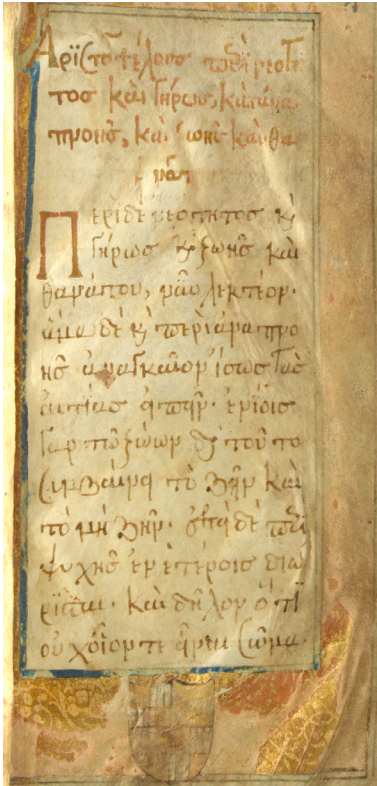 Ἀριστοτέλους περὶ νεότη
τος καὶ γήρως, καὶ ἀνα
πνοῆς, καὶ ζωῆς καὶ θα
νάτου
Περὶ δὲ νεότητος κ̀
γήρως κ̀ ζωῆς καὶ
θανάτου, νῦν λεκτέον·
ἅμα δὲ κ̀ περὶ ἀναπνο
ῆς ἀναγκαῖον ἴσως τὰς
αἰτίας εἰπεῖν· ἐνίοις
γὰρ τῶν ζώων διὰ τοῦτο
συμβαίνει τὸ ζῆν καὶ
τὸ μὴ ζῆν· ἐπεὶ δὲ περὶ
ψυχῆς ἐν ἑτέροις διώ
ρισται· καὶ δῆλον ὅτι
οὐχ οἷόν τε εἶναι σῶμα